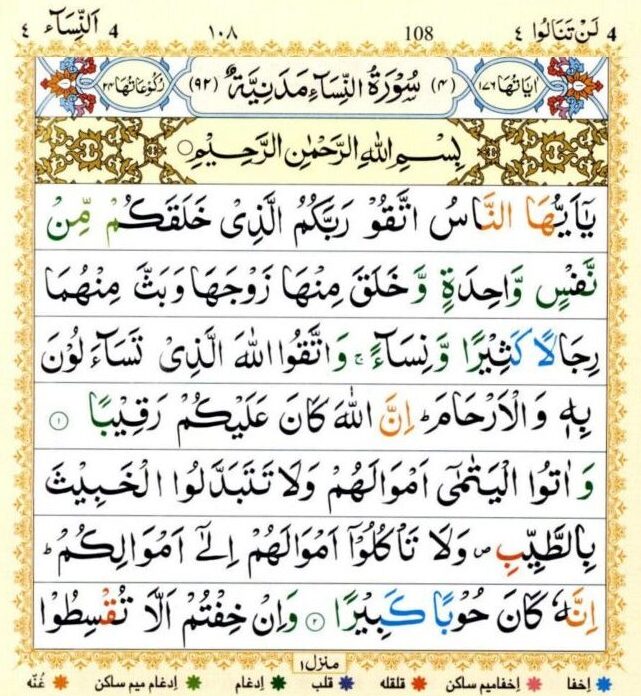 4 لَنْ تَنَالُوا ٤ 108 ١٠٨ 4 اَلنِّسَآء ٤
اٰيَاتُهَا ١٧٦ (٤) سُوْرَةُ النِّسَآءِ مَدَنِيَّةٌ (٩٢) رُكُوْعَاتُهَا ٢٤
بِسْمِ اللهِ الرَّحْمٰنِ الرَّحِيْمِ
يٰۤاَيُّهَا النَّاسُ اتَّقُوْا رَبَّكُمُ الَّذِىْ خَلَقَكُمْ مِّنْ
نَّفْسٍ وَّاحِدَةٍ وَّخَلَقَ مِنْهَا زَوْجَهَا وَبَثَّ مِنْهُمَا
رِجَالًا كَثِيْرًا وَّنِسَآءً ۚ وَاتَّقُوا اللهَ الَّذِىْ تَسَآءَلُوْنَ
بِهٖ وَالْاَرْحَامَ ؕ اِنَّ اللهَ كَانَ عَلَيْكُمْ رَقِيْبًا ١
وَاٰتُوا الْيَتٰمٰٓى اَمْوَالَهُمْ وَلَا تَتَبَدَّلُوا الْخَبِيْثَ
بِالطَّيِّبِ ۪ وَلَا تَاْكُلُوْۤا اَمْوَالَهُمْ اِلٰٓى اَمْوَالِكُمْ ؕ
اِنَّهٗ كَانَ حُوْبًا كَبِيْرًا ٢ وَاِنْ خِفْتُمْ اَلَّا تُقْسِطُوْا
منزل ١
اِخفا اِخفامیم ساکن قلقله قلب اِدغام اِدغام میم ساکن غُنّه